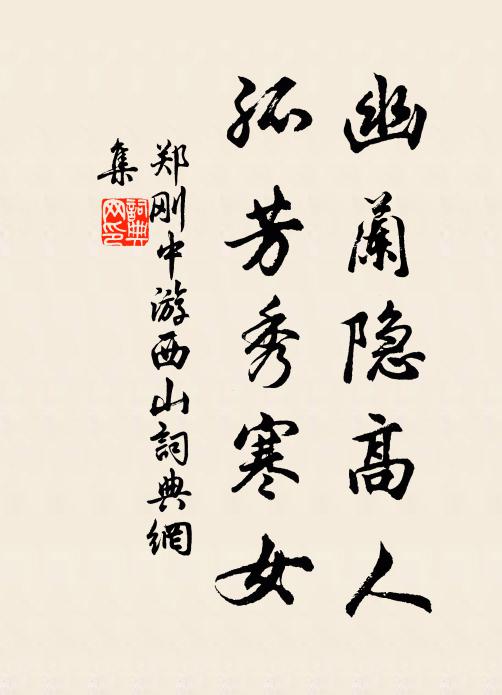 幽蘭隐高人
孤芳秀寒女
郑刚中游西山詞典網
集
詞典
网印